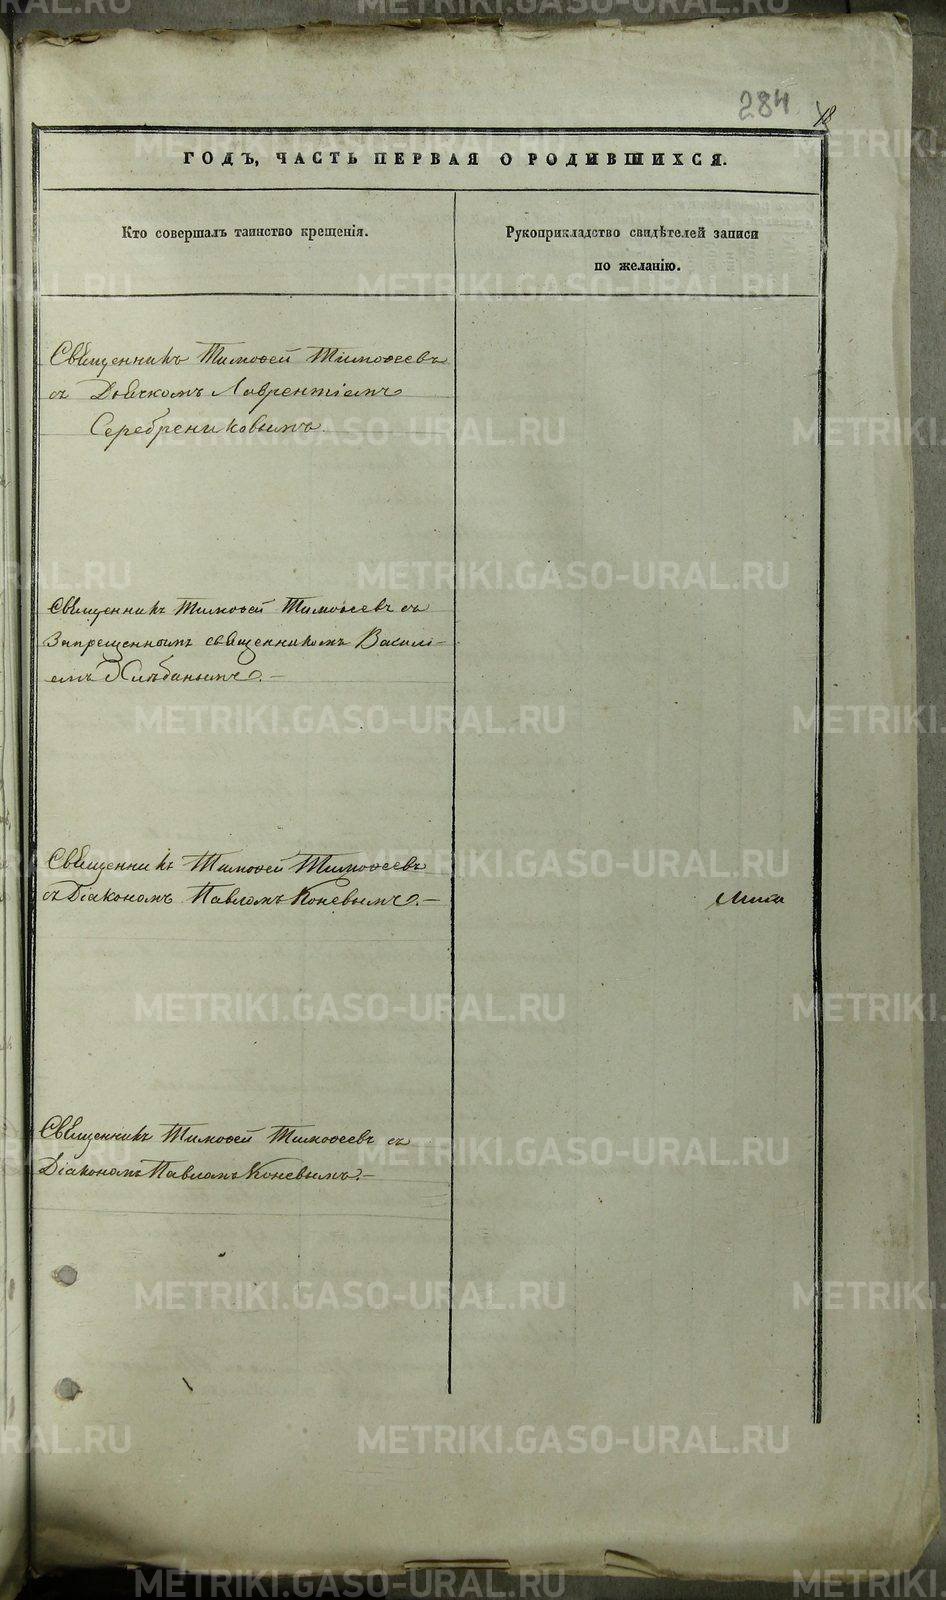 284
18
ГОДЪ, ЧАСТЬ ПЕРВАЯ О РОДИВШИХСЯ.
Кто совершалъ таинство крещенія.
Рукоприкладство свидѣтелей записи
по желанію.
Священникъ Тимоѳей Тимоѳеевъ
съ Дьячкомъ Лаврентіемъ
Серебрениковымъ.
Священникъ Тимоѳей Тимоѳеевъ съ
Запрещеннымъ священникомъ Василі-
емъ Хлѣбинымъ.—
Священникъ Тимоѳей Тимоѳеевъ
съ Діакономъ Павломъ Коневымъ.—
Священникъ Тимоѳей Тимоѳеевъ съ
Діакономъ Павломъ Коневымъ.—
METRIKI.GASO-URAL.RU